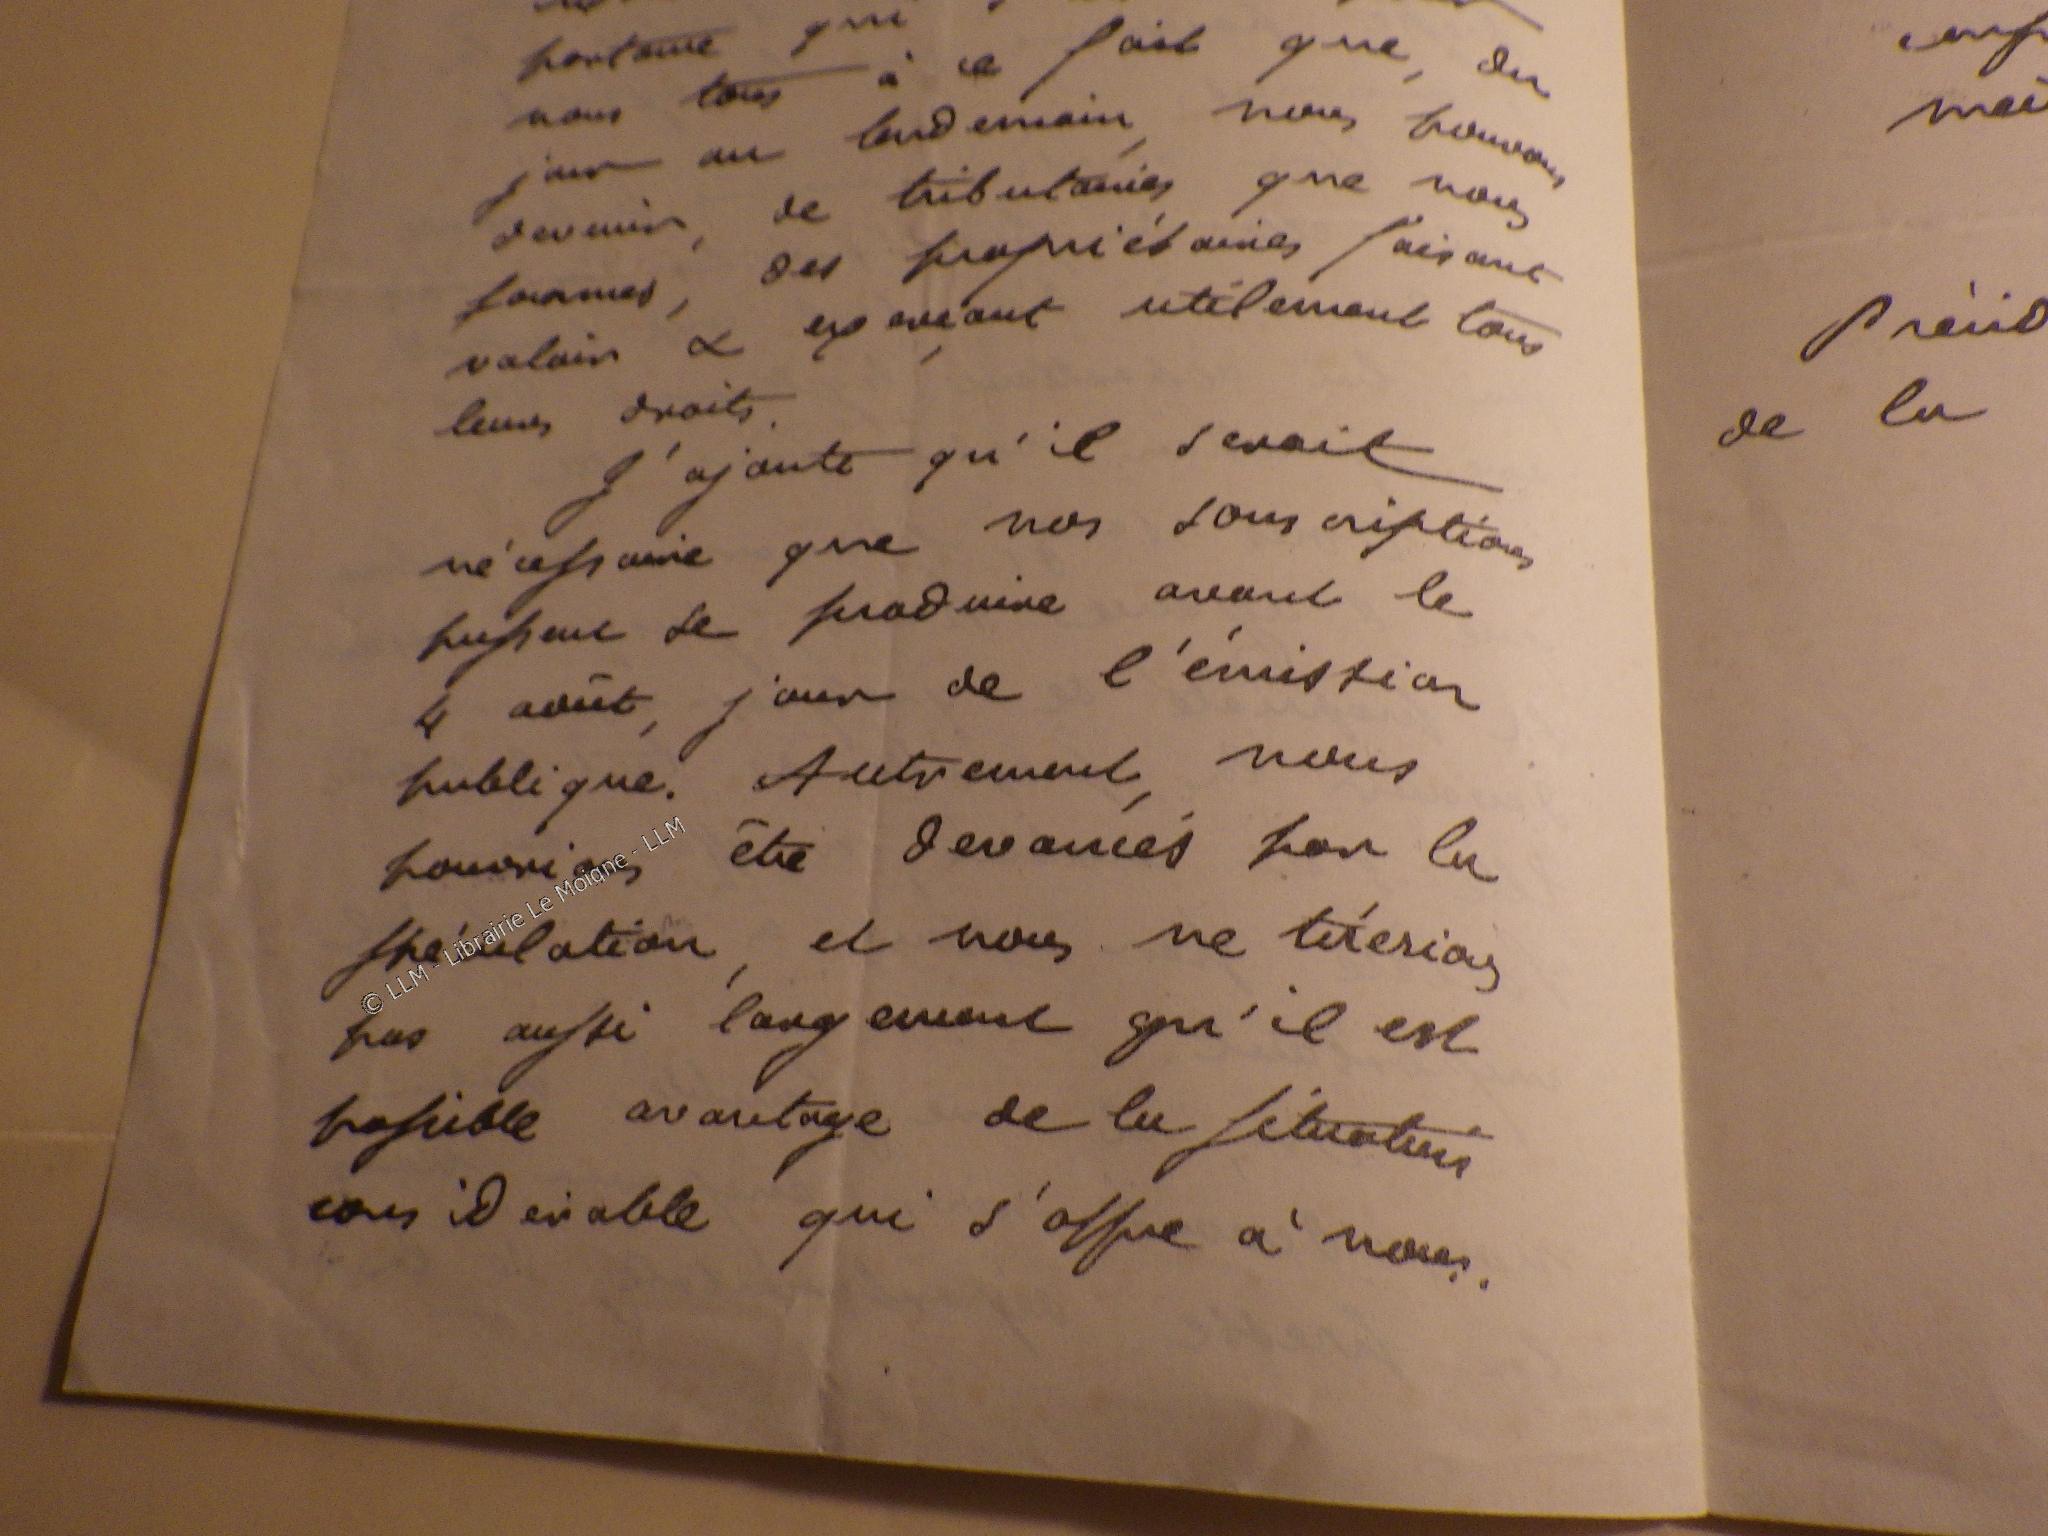 portance qui
nous tous à ce fait que, du
jour au lendemain, nous pouvons
devenir, de tributaires que nous
sommes, des propriétaires faisant
valoir & exerçant utilement tous
leurs droits.
J'ajoute qu'il serait
nécessaire que nos souscriptions
pussent se produire avant le
4 août, jour de l'émission
publique. Autrement, nous
pourrions être devancés par la
spéculation, et nous ne tirerions
pas aussi largement qu'il est
possible avantage de la situation
considérable qui s'offre à nous.
© LLM - Librairie Le Moigne - LLM
Présid
de la